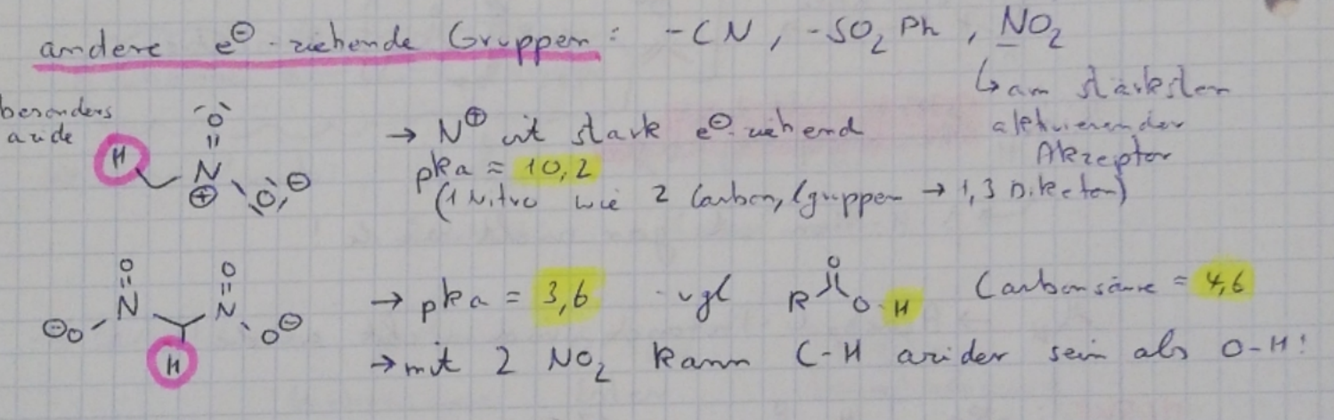 andere e⊖-ziehende Gruppen: -CN, -SO₂Ph, NO₂
↳ am stärksten
aktivierender
Akzeptor
besonders
azide
H O N⊕ O⊖
→ N⊕ ist stark e⊖-ziehend
pka ≈ 10,2
(1 Nitro wie 2 Carbonylgruppen → 1,3 Diketon)
O O
N N
⊖O O⊖
H
→ pka = 3,6 vgl R O O-H Carbonsäure = 4,6
→ mit 2 NO₂ kann C-H azider sein als O-H!